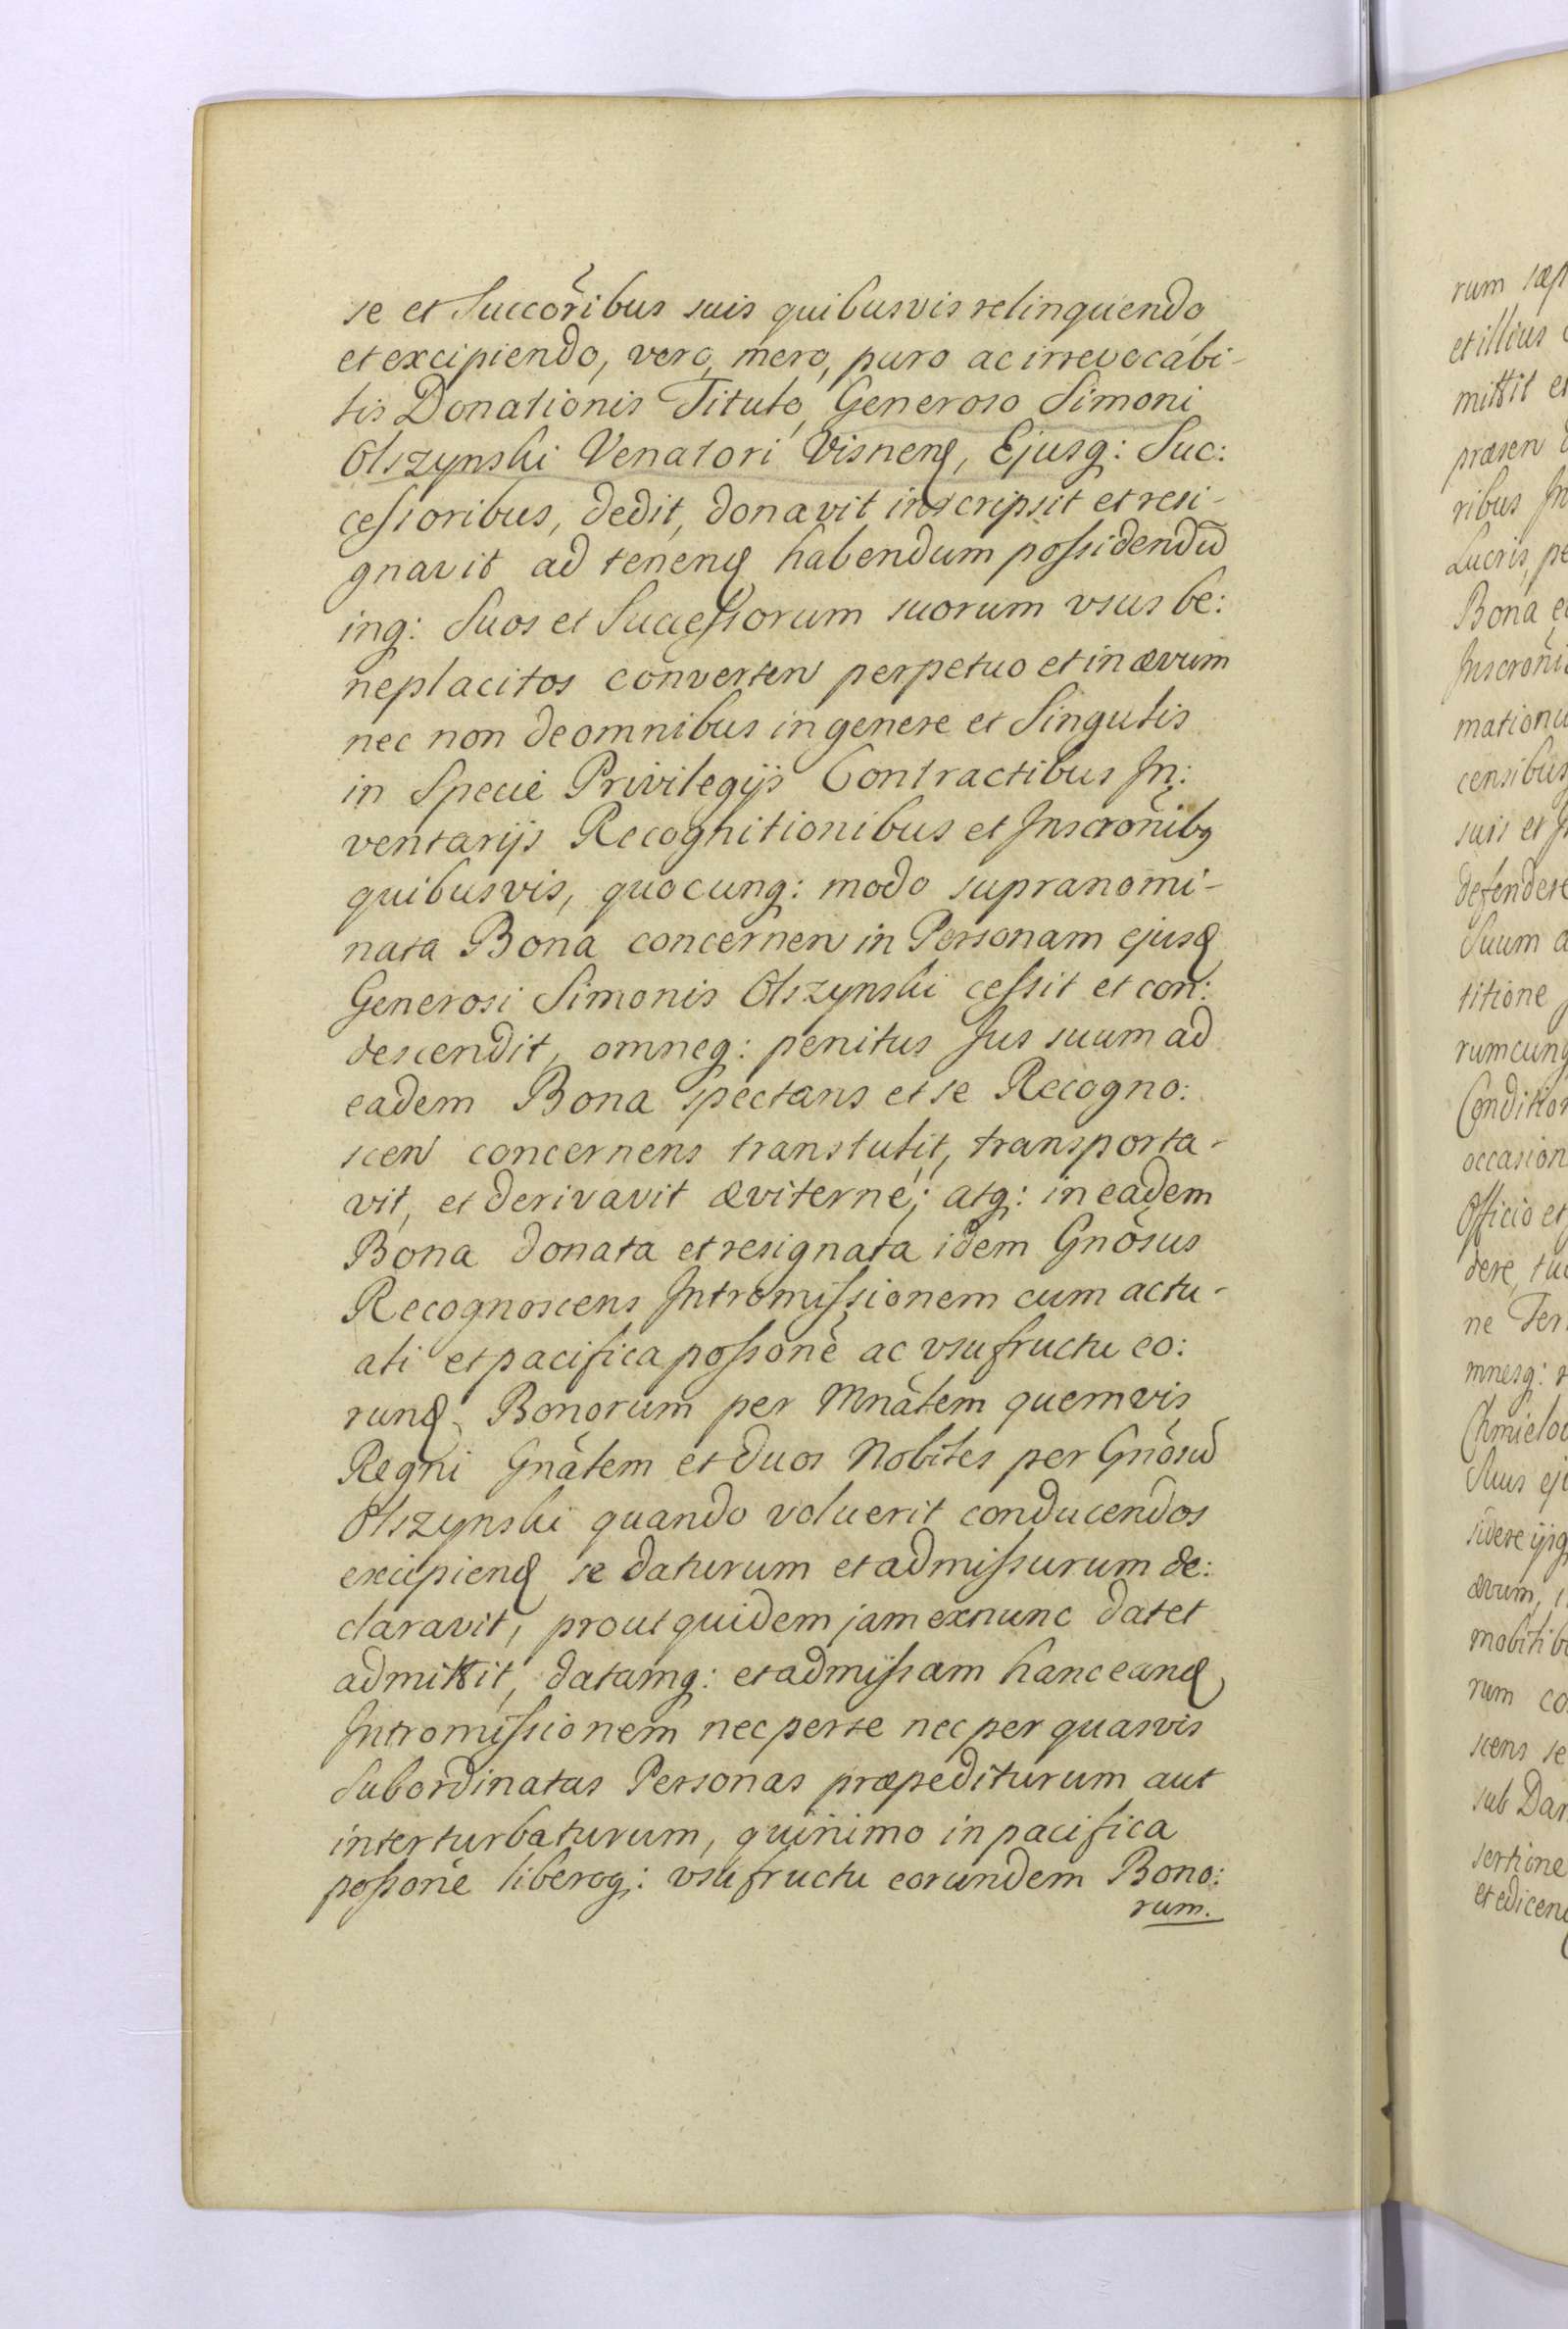 se et Succőribus suis quibusvis relinquendo
et excipiendo, vero, mero, puro ac irrevocabi-
lis Donationis Titulo, Generoso Simoni
Olszynski Venatori Visnenꝭ, Ejusq: Suc:
cessoribus, dedit, donavit inscripsit et resi-
gnavit ad tenenꝭ habendum possidendū
inq: Suos et Successorum suorum vsus be:
neplacitos converten perpetuo et in ævum
nec non de omnibus in genere et Singulis
in Specie Privilegijs Contractibus In:
ventarijs Recognitionibus et Inscrõnibꝫ
quibusvis, quocunq: modo supranomi-
nata Bona concernen in Personam ejusꝭ
Generosi Simonis Olszynski cessit et con:
descendit, omneq: penitus Jus suum ad
eadem Bona spectans et se Recogno:
scen concernens transtulit, transporta-
vit, et derivavit æviterne; atq: in eadem
Bona donata et resignata idem Gnõsus
Recognoscens Intromissionem cum actu-
ali et pacifica possonẽ ac vsufructu eo:
runꝭ Bonorum per Mnãtem quemvis
Regni Gnãtem et duos Nobiles per Gnõsū
Olszynski quando voluerit conducendos
excipienꝭ se daturum et admissurum de:
claravit, prout quidem jam exnunc dat et
admittit, datamq: et admissam hanc eanꝭ
Intromissionem nec per se nec per quasvis
Subordinatas Personas præpediturum aut
interturbaturum, quinimo in pacifica
possonẽ liberoq: vsufructu eorundem Bono:
rum.
rum sæp
et illius
mittit et
præsen
ribus In
Lucris, pe
Bona e
Inscrõni
mationu
censibus
suis et I
defendere
Suum a
titione
rumcunq
Condition
occasion
Officio et
dere, tu
ne Ter
mnesq: r
Chmielo
Suus ej
sidere ijsq
ævum,
mobilib
rum co
scens se
sub Dam
sertione
et edicen